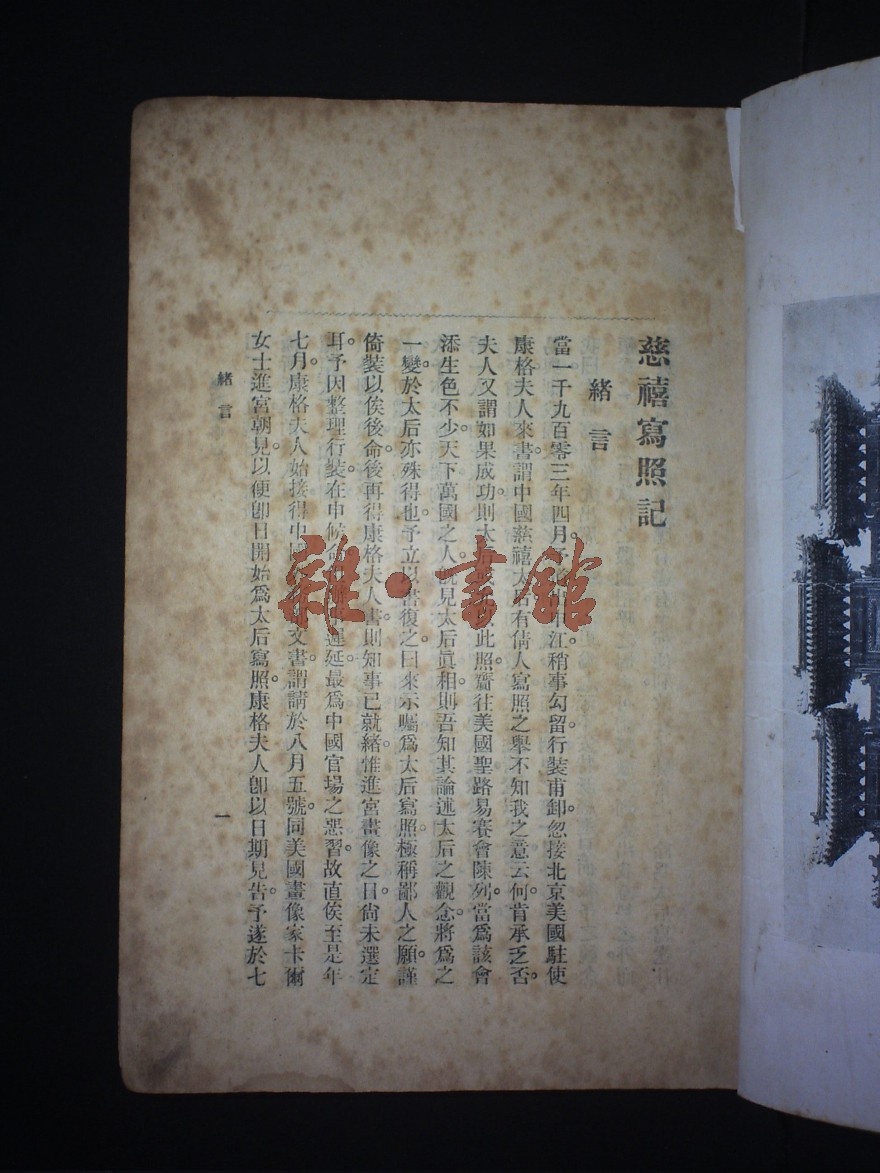 慈禧寫照記
緒言
當一千九百零三年四月。予江稍事勾留。行裝甫卸。忽接北京美國駐使
康格夫人來書。謂中國慈禧太后有倩人寫照之舉。不知我之意云何。肯承乏否。
夫人又謂如果成功。則太后此照。賫往美國聖路易賽會陳列。當爲該會
添生色不少。天下萬國之人。旣見太后眞相。則吾知其論述太后之觀念。將爲之
一變。於太后亦殊得也。予立以書復之曰。來示囑爲太后寫照。極稱鄙人之願。謹
倚裝以俟後命。後再得康格夫人書。則知事已就緒。惟進宮畫像之日。尙未選定
耳。予因整理行裝。在中候遲延最爲中國官場之惡習。故直俟至是年
七月。康格夫人始接得中國文書。謂請於八月五號。同美國畫像家卡爾
女士進宮朝見。以便卽日開始爲太后寫照。康格夫人卽以日期見吿。予遂於七
緒言
一
雜·書館